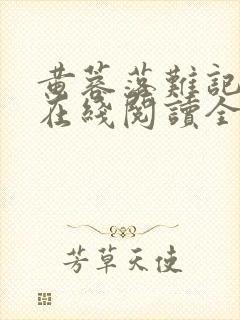 黄蓉落難記
在綫閱讀全
芳草天使